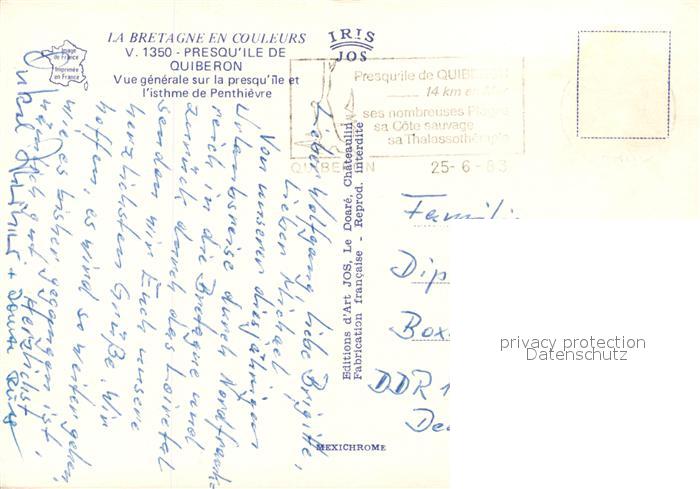 LA BRETAGNE EN COULEURS
V. 1350 - PRESQU'ILE DE
QUIBERON
Vue générale sur la presqu'île et
l'isthme de Penthièvre
Image
de France
Imprimée
en France
IRIS
JOS
Presqu'île de QUIBERON
14 km en Mer
ses nombreuses Plages
sa Côte sauvage
sa Thalassothérapie
QUIBERON
25-6-83
Lieber Wolfgang, liebe Brigitte,
lieber Michael
Von unserer diesjährigen
Urlaubsreise durch Nordfrank-
reich in die Bretagne und
zurück durch das Loiretal
senden wir Euch unsere
herzlichsten Grüße. Wir
hoffen, es wird so weitergehen,
wie es bisher gegangen ist,
nämlich gut. Herzlichst
Editions d'Art JOS, Le Doaré, Châteaulin
Fabrication française - Reprod. interdite
Famili
Dip
Box
DDR 1
De
MEXICHROME
privacy protection
Datenschutz